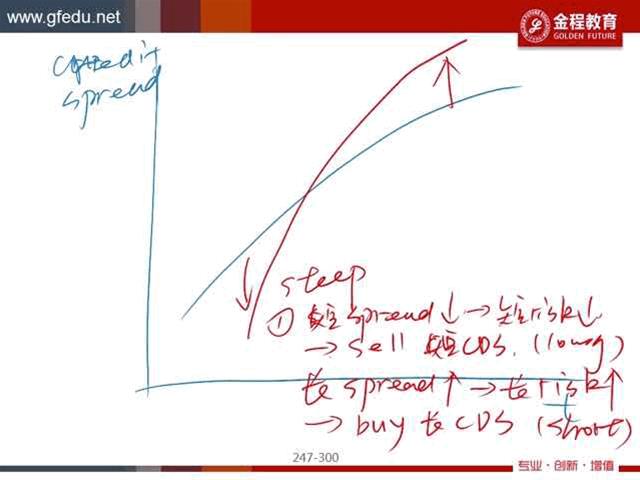 www.gfedu.net
金程教育
GOLDEN FUTURE
credit
spread
steep
① 短 spread ↓ → 短 risk ↓
→ sell 短 CDS. (long)
长 spread ↑ → 长 risk ↑
t
→ buy 长 CDS (short)
247-300
专业·创新·增值